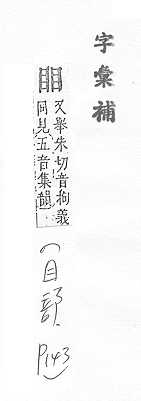 字彙補
䀠又舉朱切音拘義
同見五音集韻
(目部 P143)